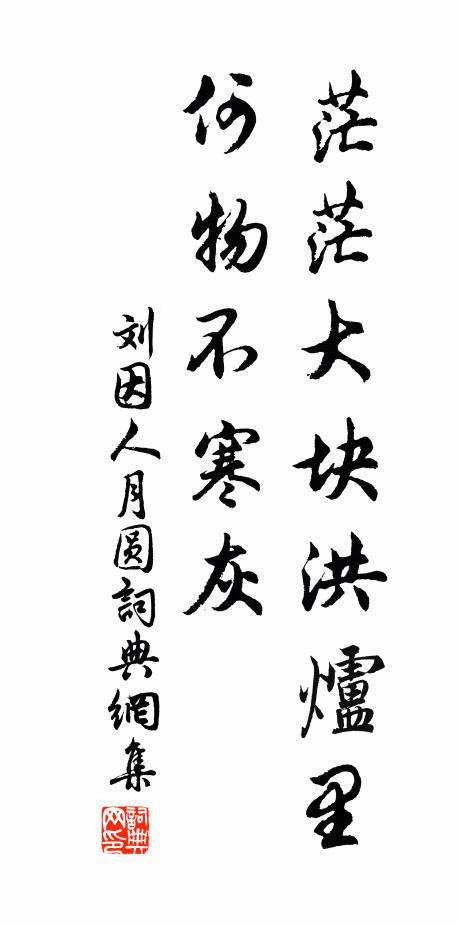 茫茫大块洪爐里
何物不寒灰
刘因人月圆詞典網集
詞典
网印